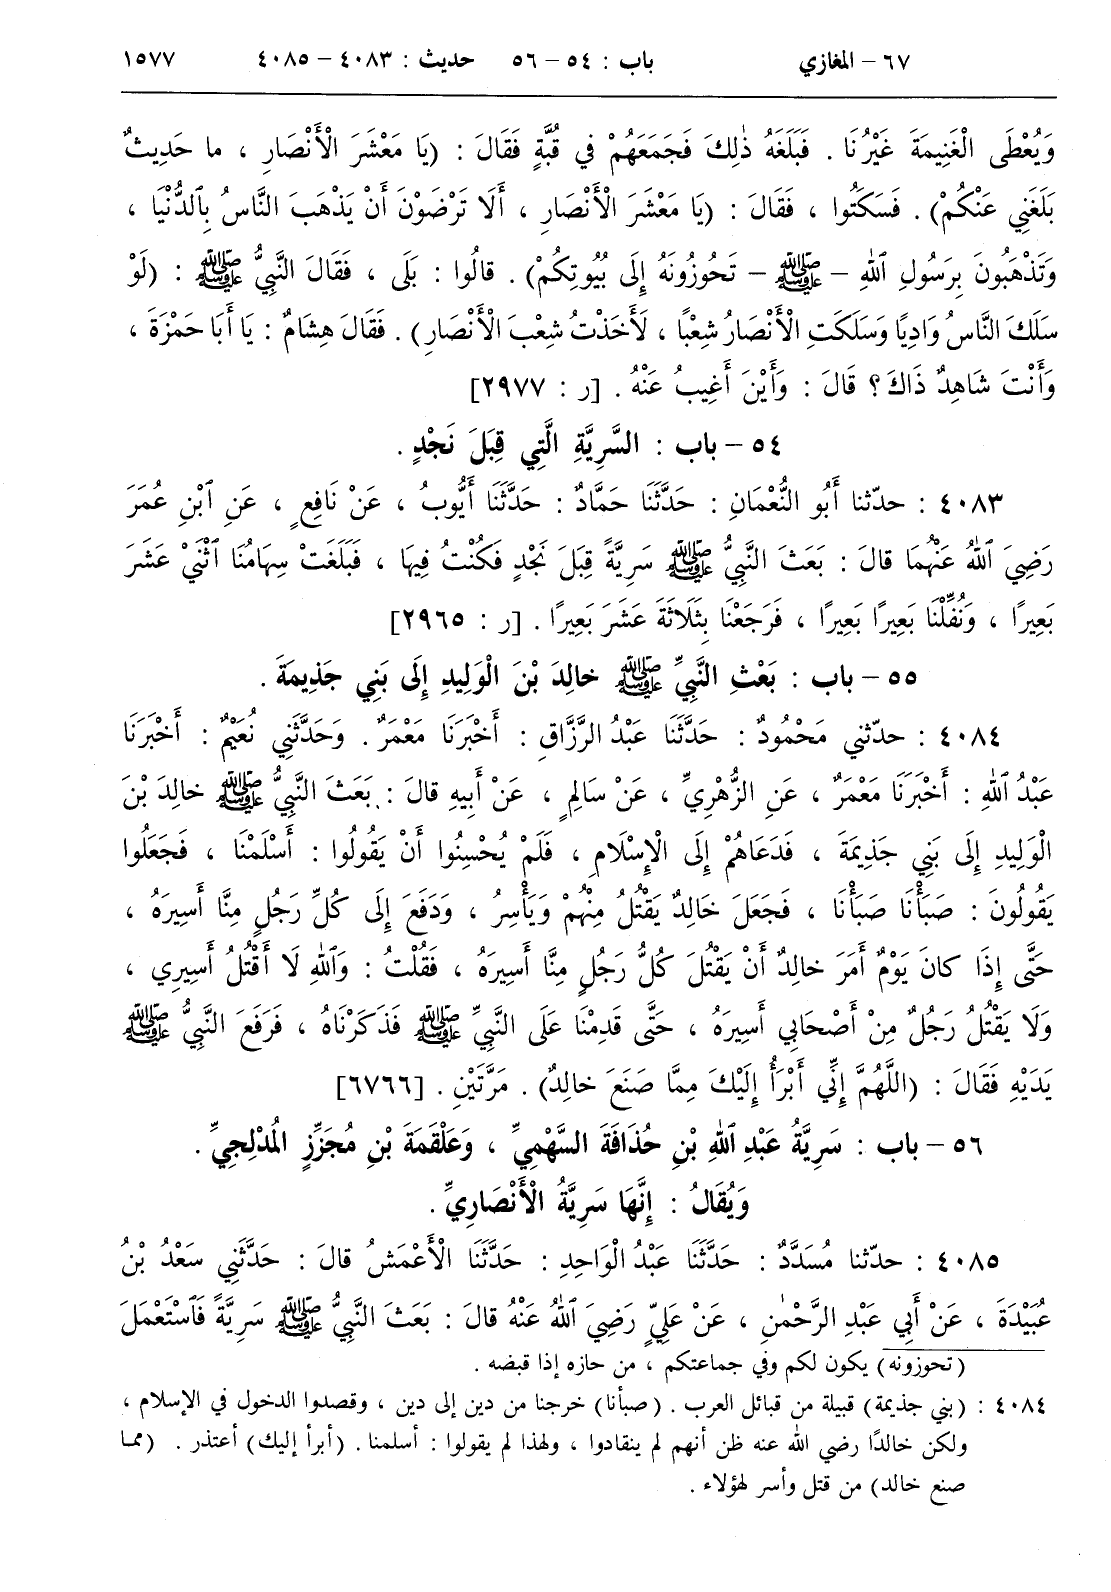 ٦٧ – المغازي باب : ٥٤ – ٥٦ حديث : ٤٠٨٣ – ٤٠٨٥ ١٥٧٧
وَيُعْطَى الْغَنِيمَةَ غَيْرُنَا . فَبَلَغَهُ ذٰلِكَ فَجَمَعَهُمْ في قُبَّةٍ فَقَالَ : (يَا مَعْشَرَ الْأَنْصَارِ ، ما حَدِيثٌ
بَلَغَنِي عَنْكُمْ) . فَسَكَتُوا ، فَقَالَ : (يَا مَعْشَرَ الْأَنْصَارِ ، أَلَا تَرْضَوْنَ أَنْ يَذْهَبَ النَّاسُ بِالدُّنْيَا ،
وَتَذْهَبُونَ بِرَسُولِ ٱللهِ – ﷺ – تَحُوزُونَهُ إِلَى بُيُوتِكُمْ) . قالُوا : بَلَى ، فَقَالَ النَّبِيُّ ﷺ : (لَوْ
سَلَكَ النَّاسُ وَادِيًا وَسَلَكَتِ الْأَنْصَارُ شِعْبًا ، لَأَخَذْتُ شِعْبَ الْأَنْصَارِ) . فَقَالَ هِشَامٌ : يَا أَبَا حَمْزَةَ ،
وَأَنْتَ شَاهِدٌ ذَاكَ ؟ قَالَ : وَأَيْنَ أَغِيبُ عَنْهُ . [ر : ٢٩٧٧]
٥٤ – باب : السَّرِيَّةِ الَّتِي قِبَلَ نَجْدٍ .
٤٠٨٣ : حدّثنا أَبُو النُّعْمَانِ : حَدَّثَنَا حَمَّادٌ : حَدَّثَنَا أَيُّوبُ ، عَنْ نَافِعٍ ، عَنِ ٱبْنِ عُمَرَ
رَضِيَ ٱللهُ عَنْهُمَا قالَ : بَعَثَ النَّبِيُّ ﷺ سَرِيَّةً قِبَلَ نَجْدٍ فَكُنْتُ فِيهَا ، فَبَلَغَتْ سِهَامُنَا ٱثْنَيْ عَشَرَ
بَعِيرًا ، وَنُفِّلْنَا بَعِيرًا بَعِيرًا ، فَرَجَعْنَا بِثَلَاثَةَ عَشَرَ بَعِيرًا . [ر : ٢٩٦٥]
٥٥ – باب : بَعْثِ النَّبِيِّ ﷺ خالِدَ بْنَ الْوَلِيدِ إِلَى بَنِي جَذِيمَةَ .
٤٠٨٤ : حدّثني مَحْمُودٌ : حَدَّثَنَا عَبْدُ الرَّزَّاقِ : أَخْبَرَنَا مَعْمَرٌ . وَحَدَّثَنِي نُعَيْمٌ : أَخْبَرَنَا
عَبْدُ ٱللهِ : أَخْبَرَنَا مَعْمَرٌ ، عَنِ الزُّهْرِيِّ ، عَنْ سَالِمٍ ، عَنْ أَبِيهِ قالَ : بَعَثَ النَّبِيُّ ﷺ خالِدَ بْنَ
الْوَلِيدِ إِلَى بَنِي جَذِيمَةَ ، فَدَعَاهُمْ إِلَى الْإِسْلَامِ ، فَلَمْ يُحْسِنُوا أَنْ يَقُولُوا : أَسْلَمْنَا ، فَجَعَلُوا
يَقُولُونَ : صَبَأْنَا صَبَأْنَا ، فَجَعَلَ خَالِدٌ يَقْتُلُ مِنْهُمْ وَيَأْسِرُ ، وَدَفَعَ إِلَى كُلِّ رَجُلٍ مِنَّا أَسِيرَهُ ،
حَتَّى إِذَا كانَ يَوْمٌ أَمَرَ خالِدٌ أَنْ يَقْتُلَ كُلُّ رَجُلٍ مِنَّا أَسِيرَهُ ، فَقُلْتُ : وَٱللهِ لَا أَقْتُلُ أَسِيرِي ،
وَلَا يَقْتُلُ رَجُلٌ مِنْ أَصْحَابِي أَسِيرَهُ ، حَتَّى قَدِمْنَا عَلَى النَّبِيِّ ﷺ فَذَكَرْنَاهُ ، فَرَفَعَ النَّبِيُّ ﷺ
يَدَيْهِ فَقَالَ : (اللَّهُمَّ إِنِّي أَبْرَأُ إِلَيْكَ مِمَّا صَنَعَ خالِدٌ) . مَرَّتَيْنِ . [٦٧٦٦]
٥٦ – باب : سَرِيَّةُ عَبْدِ ٱللهِ بْنِ حُذَافَةَ السَّهْمِيِّ ، وَعَلْقَمَةَ بْنِ مُجَزِّزٍ الْمُدْلِجِيِّ .
وَيُقَالُ : إِنَّهَا سَرِيَّةُ الْأَنْصَارِيِّ .
٤٠٨٥ : حدّثنا مُسَدَّدٌ : حَدَّثَنَا عَبْدُ الْوَاحِدِ : حَدَّثَنَا الْأَعْمَشُ قالَ : حَدَّثَنِي سَعْدُ بْنُ
عُبَيْدَةَ ، عَنْ أَبِي عَبْدِ الرَّحْمٰنِ ، عَنْ عَلِيٍّ رَضِيَ ٱللهُ عَنْهُ قالَ : بَعَثَ النَّبِيُّ ﷺ سَرِيَّةً فَٱسْتَعْمَلَ
(تحوزونه) يكون لكم وفي جماعتكم ، من حازه إذا قبضه .
٤٠٨٤ : (بني جذيمة) قبيلة من قبائل العرب . (صبأنا) خرجنا من دين إلى دين ، وقصدوا الدخول في الإسلام ،
ولكن خالدًا رضي الله عنه ظن أنهم لم ينقادوا ، ولهذا لم يقولوا : أسلمنا . (أبرأ إليك) أعتذر . (مما
صنع خالد) من قتل وأسر لهؤلاء .